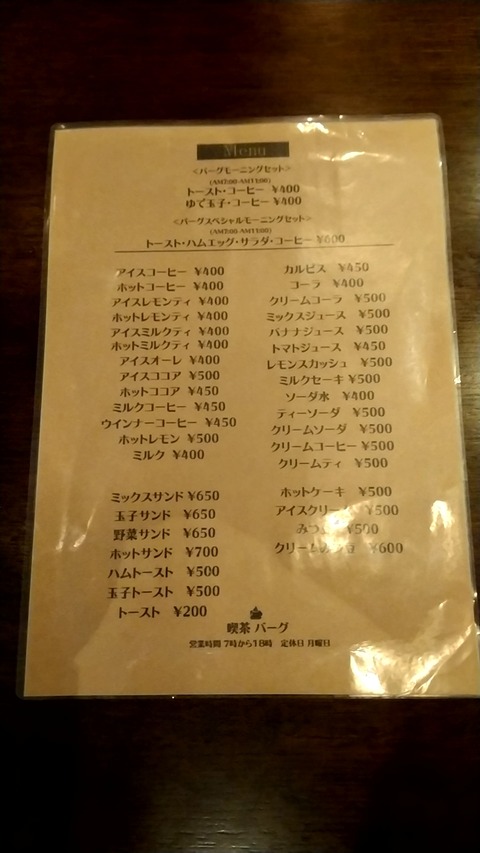 Menu
<バーグモーニングセット>
(AM7:00-AM11:00)
トースト・コーヒー ¥400
ゆで玉子・コーヒー ¥400
<バーグスペシャルモーニングセット>
(AM7:00-AM11:00)
トースト・ハムエッグ・サラダ・コーヒー ¥600
アイスコーヒー ¥400
ホットコーヒー ¥400
アイスレモンティ ¥400
ホットレモンティ ¥400
アイスミルクティ ¥400
ホットミルクティ ¥400
アイスオーレ ¥400
アイスココア ¥500
ホットココア ¥450
ミルクコーヒー ¥450
ウインナーコーヒー ¥450
ホットレモン ¥500
ミルク ¥400
カルピス ¥450
コーラ ¥400
クリームコーラ ¥500
ミックスジュース ¥500
バナナジュース ¥500
トマトジュース ¥450
レモンスカッシュ ¥500
ミルクセーキ ¥500
ソーダ水 ¥400
ティーソーダ ¥500
クリームソーダ ¥500
クリームコーヒー ¥500
クリームティ ¥500
ミックスサンド ¥650
玉子サンド ¥650
野菜サンド ¥650
ホットサンド ¥700
ハムトースト ¥500
玉子トースト ¥500
トースト ¥200
ホットケーキ ¥500
アイスクリーム ¥500
¥500
¥600
喫茶 バーグ
営業時間 7時から18時 定休日 月曜日